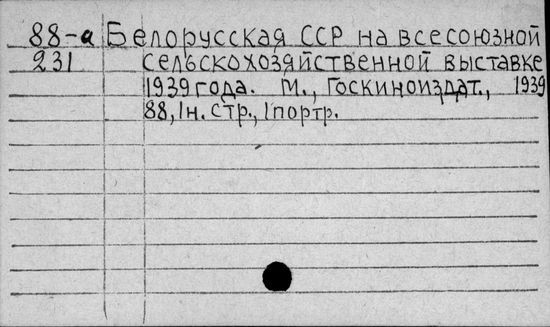 88-а Белорусская ССР на всесоюзной
231 сельскохозяйственной выставке
1939 года. М., Госкиноиздат., 1939
88, 1н. стр., 1портр.